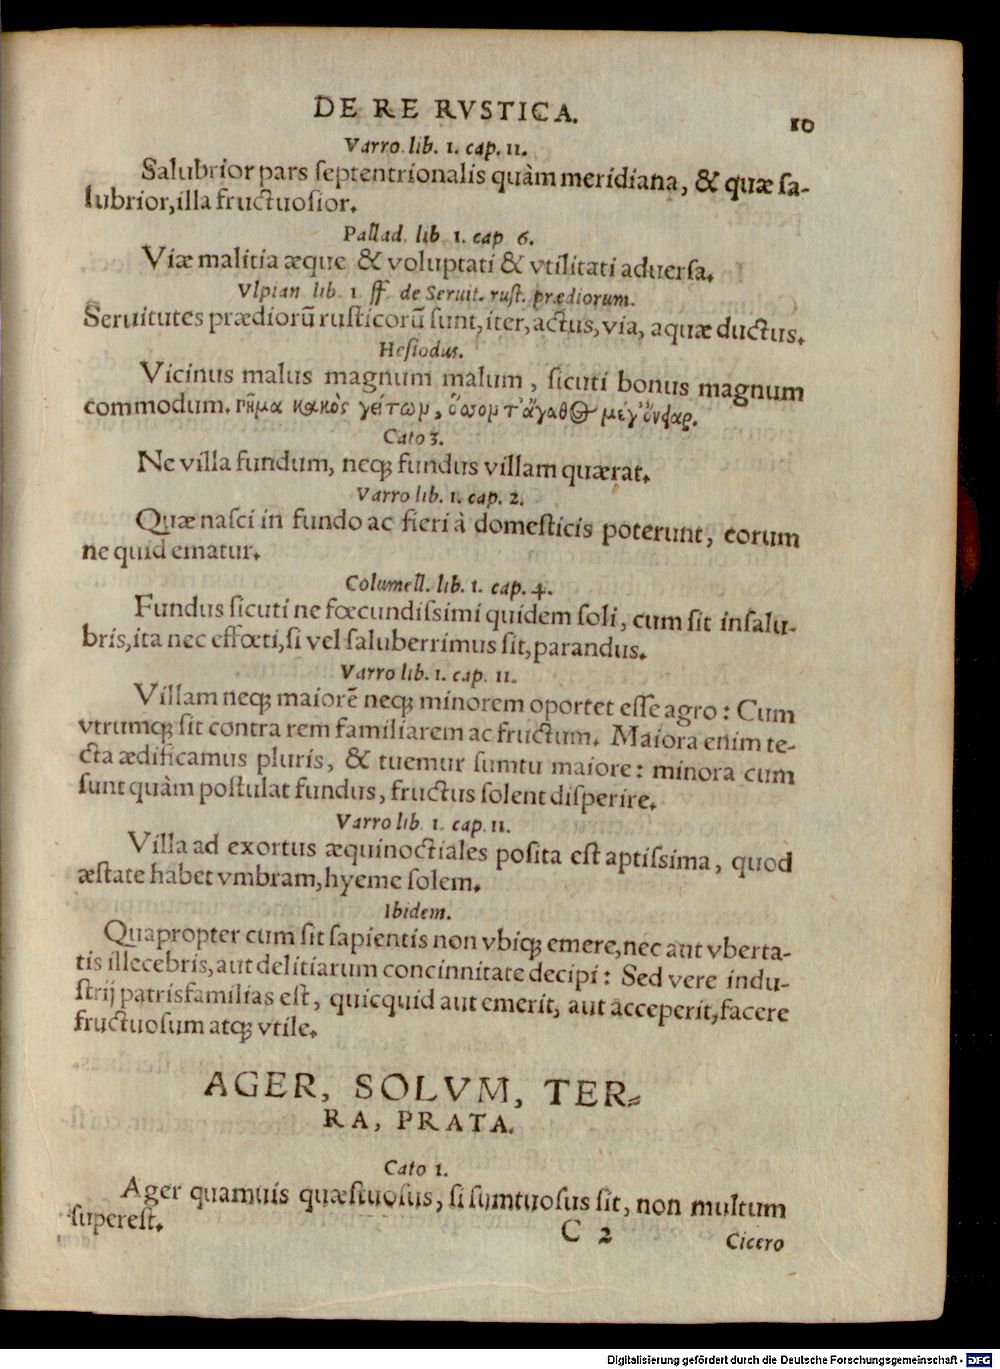 DE RE RVSTICA.
10
Varro lib. 1. cap. 11.
Salubrior pars ſeptentrionalis quàm meridiana, & quæ ſa-
lubrior, illa fructuoſior.
Pallad. lib. 1. cap 6.
Viæ malitia æque & voluptati & vtilitati aduerſa.
Vlpian. lib. 1 ff. de Seruit. ruſt. prædiorum.
Seruitutes prædiorũ ruſticorũ ſunt, iter, actus, via, aquæ ductus.
Heſiodus.
Vicinus malus magnum malum, ſicuti bonus magnum
commodum. πῆμα κακὸς γείτων,
Cato 3.
Ne villa fundum, neqꝫ fundus villam quærat.
Varro lib. 1. cap. 2.
Quæ naſci in fundo ac fieri à domeſticis poterunt, eorum
ne quid ematur.
Columell. lib. 1. cap. 4.
Fundus ſicuti ne fœcundiſsimi quidem ſoli, cum ſit inſalu-
bris, ita nec effœti, ſi vel ſaluberrimus ſit, parandus.
Varro lib. 1. cap. 11.
Villam neqꝫ maiorẽ neqꝫ minorem oportet eſſe agro: Cum
vtrumqꝫ ſit contra rem familiarem ac fructum. Maiora enim te-
cta ædificamus pluris, & tuemur ſumtu maiore: minora cum
ſunt quàm poſtulat fundus, fructus ſolent diſperire.
Varro lib. 1. cap. 11.
Villa ad exortus æquinoctiales poſita eſt aptiſsima, quod
æſtate habet vmbram, hyeme ſolem.
Ibidem.
Quapropter cum ſit ſapientis non vbiqꝫ emere, nec aut vberta-
tis illecebris, aut delitiarum concinnitate decipi: Sed vere indu-
ſtrij patrisfamilias eſt, quicquid aut emerit, aut acceperit, facere
fructuoſum atqꝫ vtile.
AGER, SOLVM, TER-
RA, PRATA.
Cato 1.
Ager quamuis quæſtuoſus, ſi ſumtuoſus ſit, non multum
ſupereſt.
C 2
Cicero
Digitalisierung gefördert durch die Deutsche Forschungsgemeinschaft - DFG